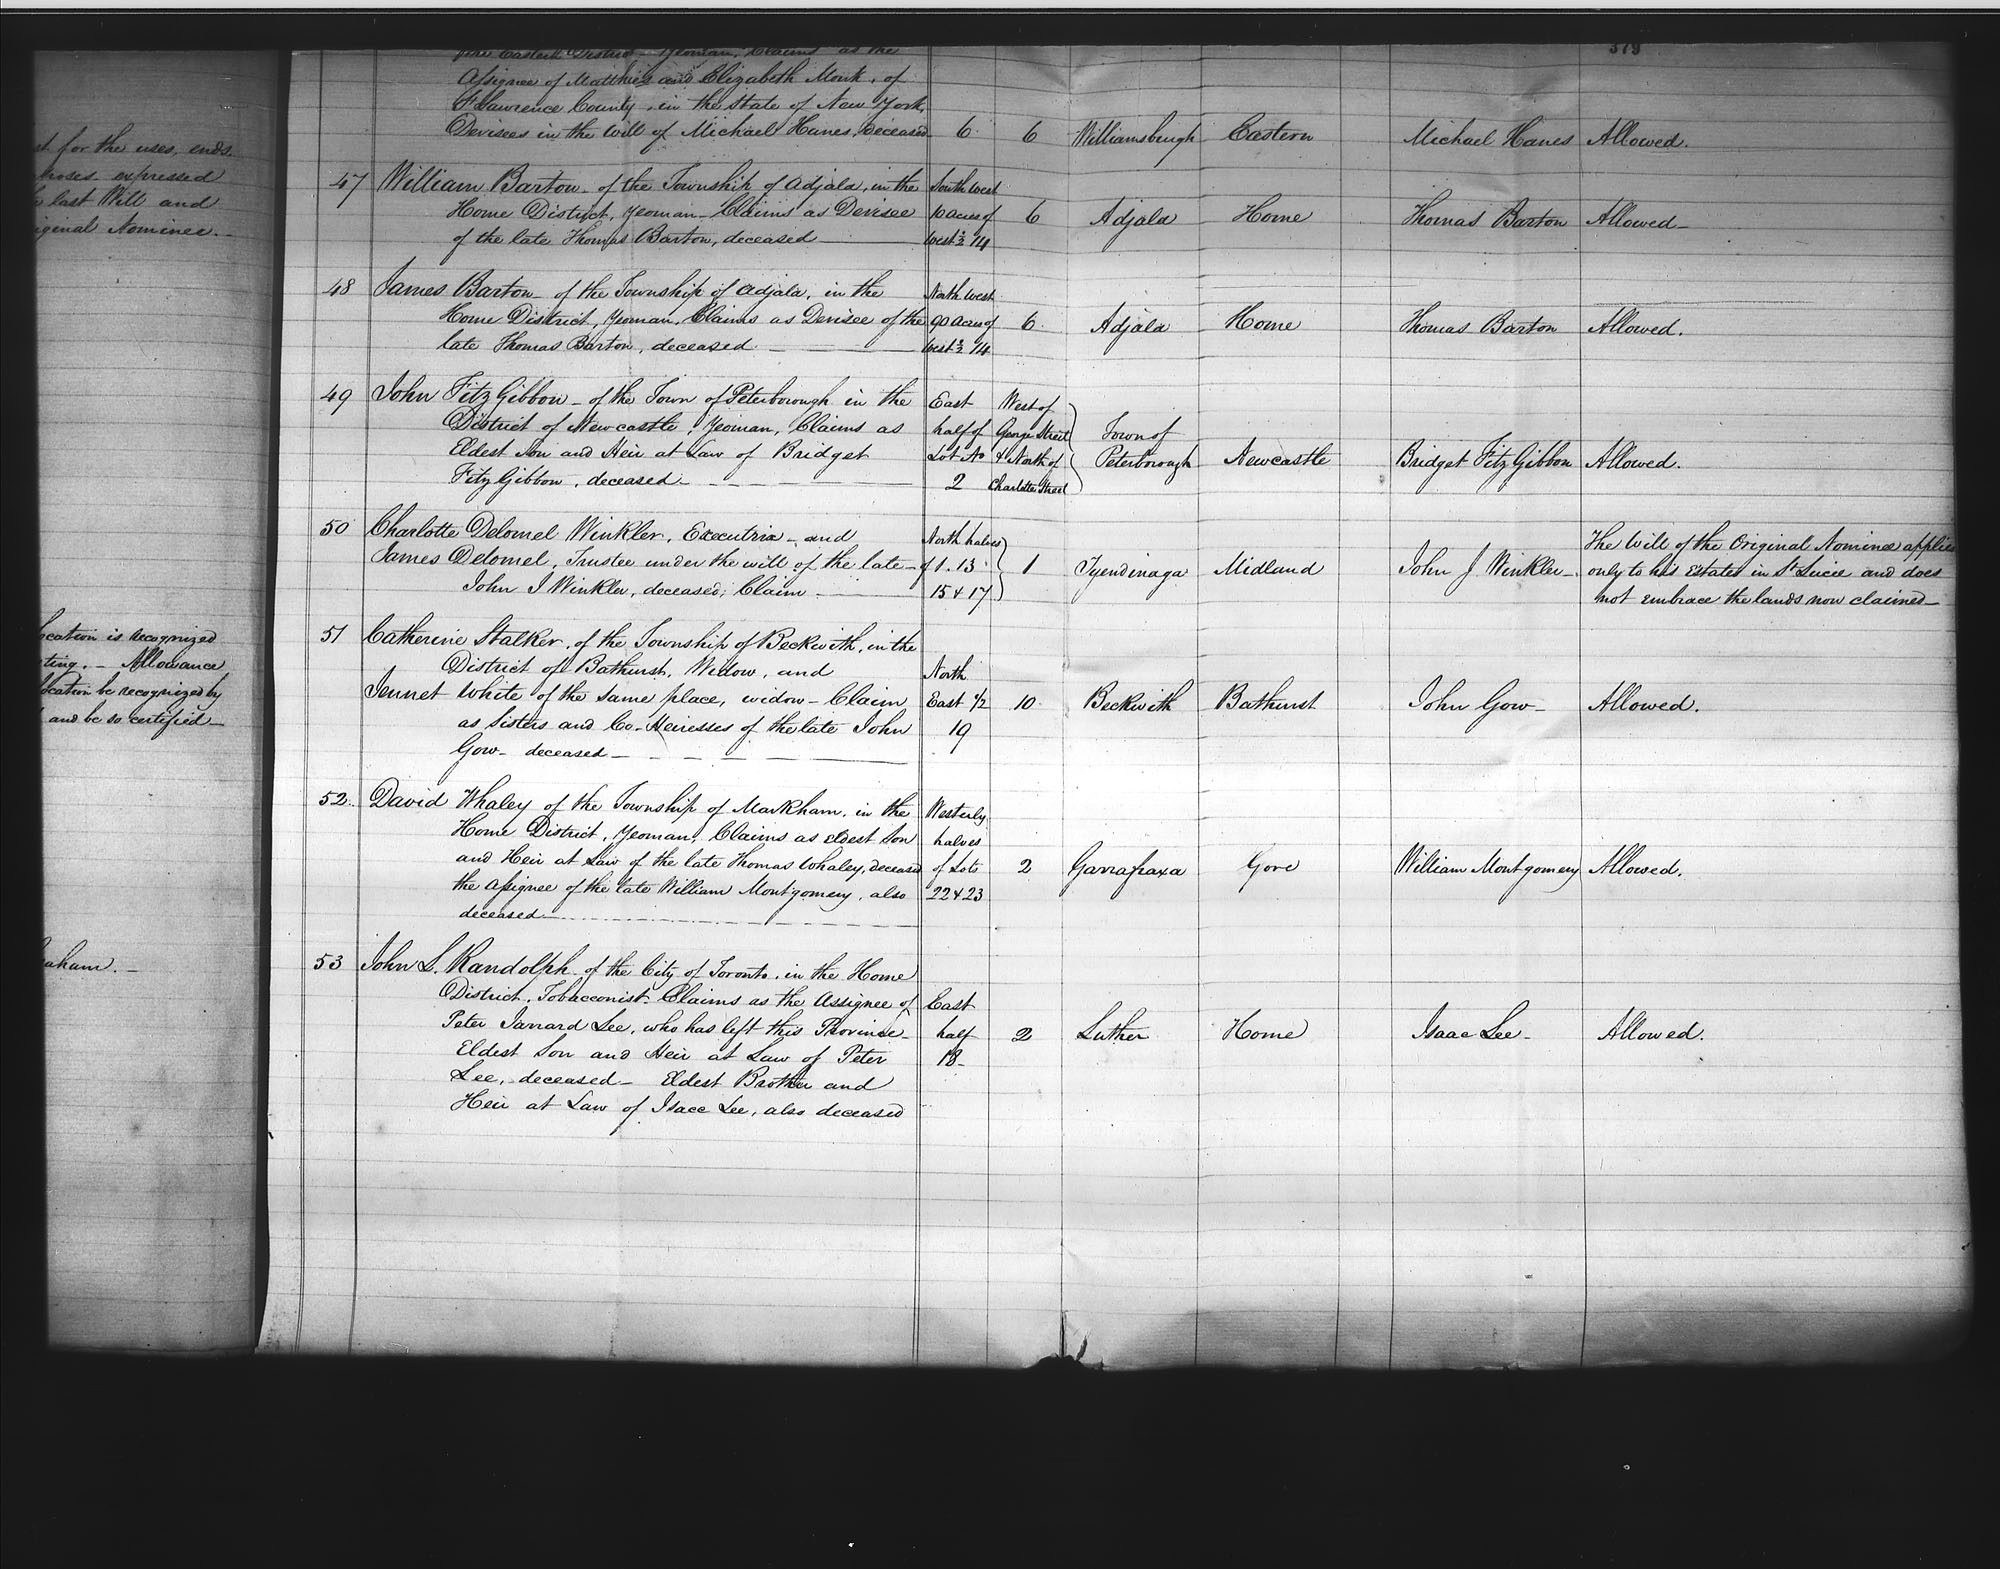 379
st for the uses, ends,
poses expressed
last Will and
iginal Nominee.-
ocation is recognized
ting. - Allowance
ocation be recognized by
and be so certified-
aham.-
the Eastern District - Yeoman, Claims as the
Assignee of Matthias and Elizabeth Monk, of
St Lawrence County, in the State of New York,
Devisees in the Will of Michael Hanes, deceased 6. 6 Williamsburgh Eastern Michael Hanes Allowed.
47 William Barton - of the Township of Adjala, in the South West
Home District, Yeoman - Claims as Devisee 10 acres of 6 Adjala Home Thomas Barton Allowed-
of the late Thomas Barton, deceased - West ½ 14
48 James Barton - of the Township of Adjala, in the North West
Home District, Yeoman, Claims as Devisee of the 90 Acres of 6. Adjala Home Thomas Barton Allowed.
late Thomas Barton, deceased. - West ½ 14
49 John FitzGibbon - of the Town of Peterborough in the East West of
District of Newcastle, Yeoman, Claims as half of George Street Town of
Eldest Son and Heir at Law of Bridget Lot No & North of Peterborough Newcastle Bridget FitzGibbon Allowed.
FitzGibbon, deceased - 2 Charlotte Street
50 Charlotte Delomel Winkler, Executrix - and North halves The Will of the Original Nominee applies
James Delomel, Trustee under the will of the late - of 1. 13. 1 Tyendinaga Midland John J Winkler - only to his Estates in St Lucie and does
John J Winkler, deceased; Claim - 15 & 17 not embrace the lands now claimed-
51 Catherine Stalker, of the Township of Beckwith, in the
District of Bathurst, Widow, and North
Jennet White of the same place, widow - Claim East 1/2 10. Beckwith Bathurst John Gow - Allowed.
as Sisters and Co-Heiresses of the late John 19
Gow - deceased -
52. David Whaley of the Township of Markham, in the Westerly
Home District, Yeoman, Claims as eldest Son halves
and Heir at Law of the late Thomas Whaley, deceased of Lots 2 Garrafraxa Gore William Montgomery Allowed.
the Assignee of the late William Montgomery, also 22 & 23
deceased -
53 John L. Randolph - of the City of Toronto, in the Home
District, Tobacconist - Claims as the Assignee of East
Peter Jarrard Lee, who has left this Province - half 2 Luther Home Isaac Lee - Allowed.
Eldest Son and Heir at Law of Peter 18-
Lee, deceased - Eldest Brother and
Heir at Law of Isaac Lee, also deceased